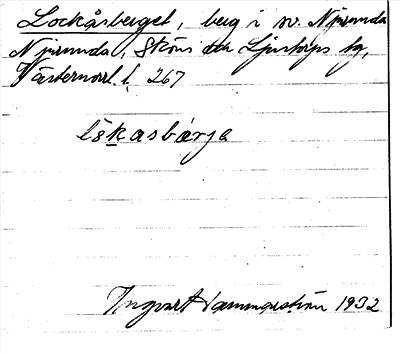 Lockåsberget, berg i sv. Njurunda
Njurunda, Sköns och Ljustorps tg,
Västernorrl. l. 267
låkasbárja
Ingvart Hammarström 1932